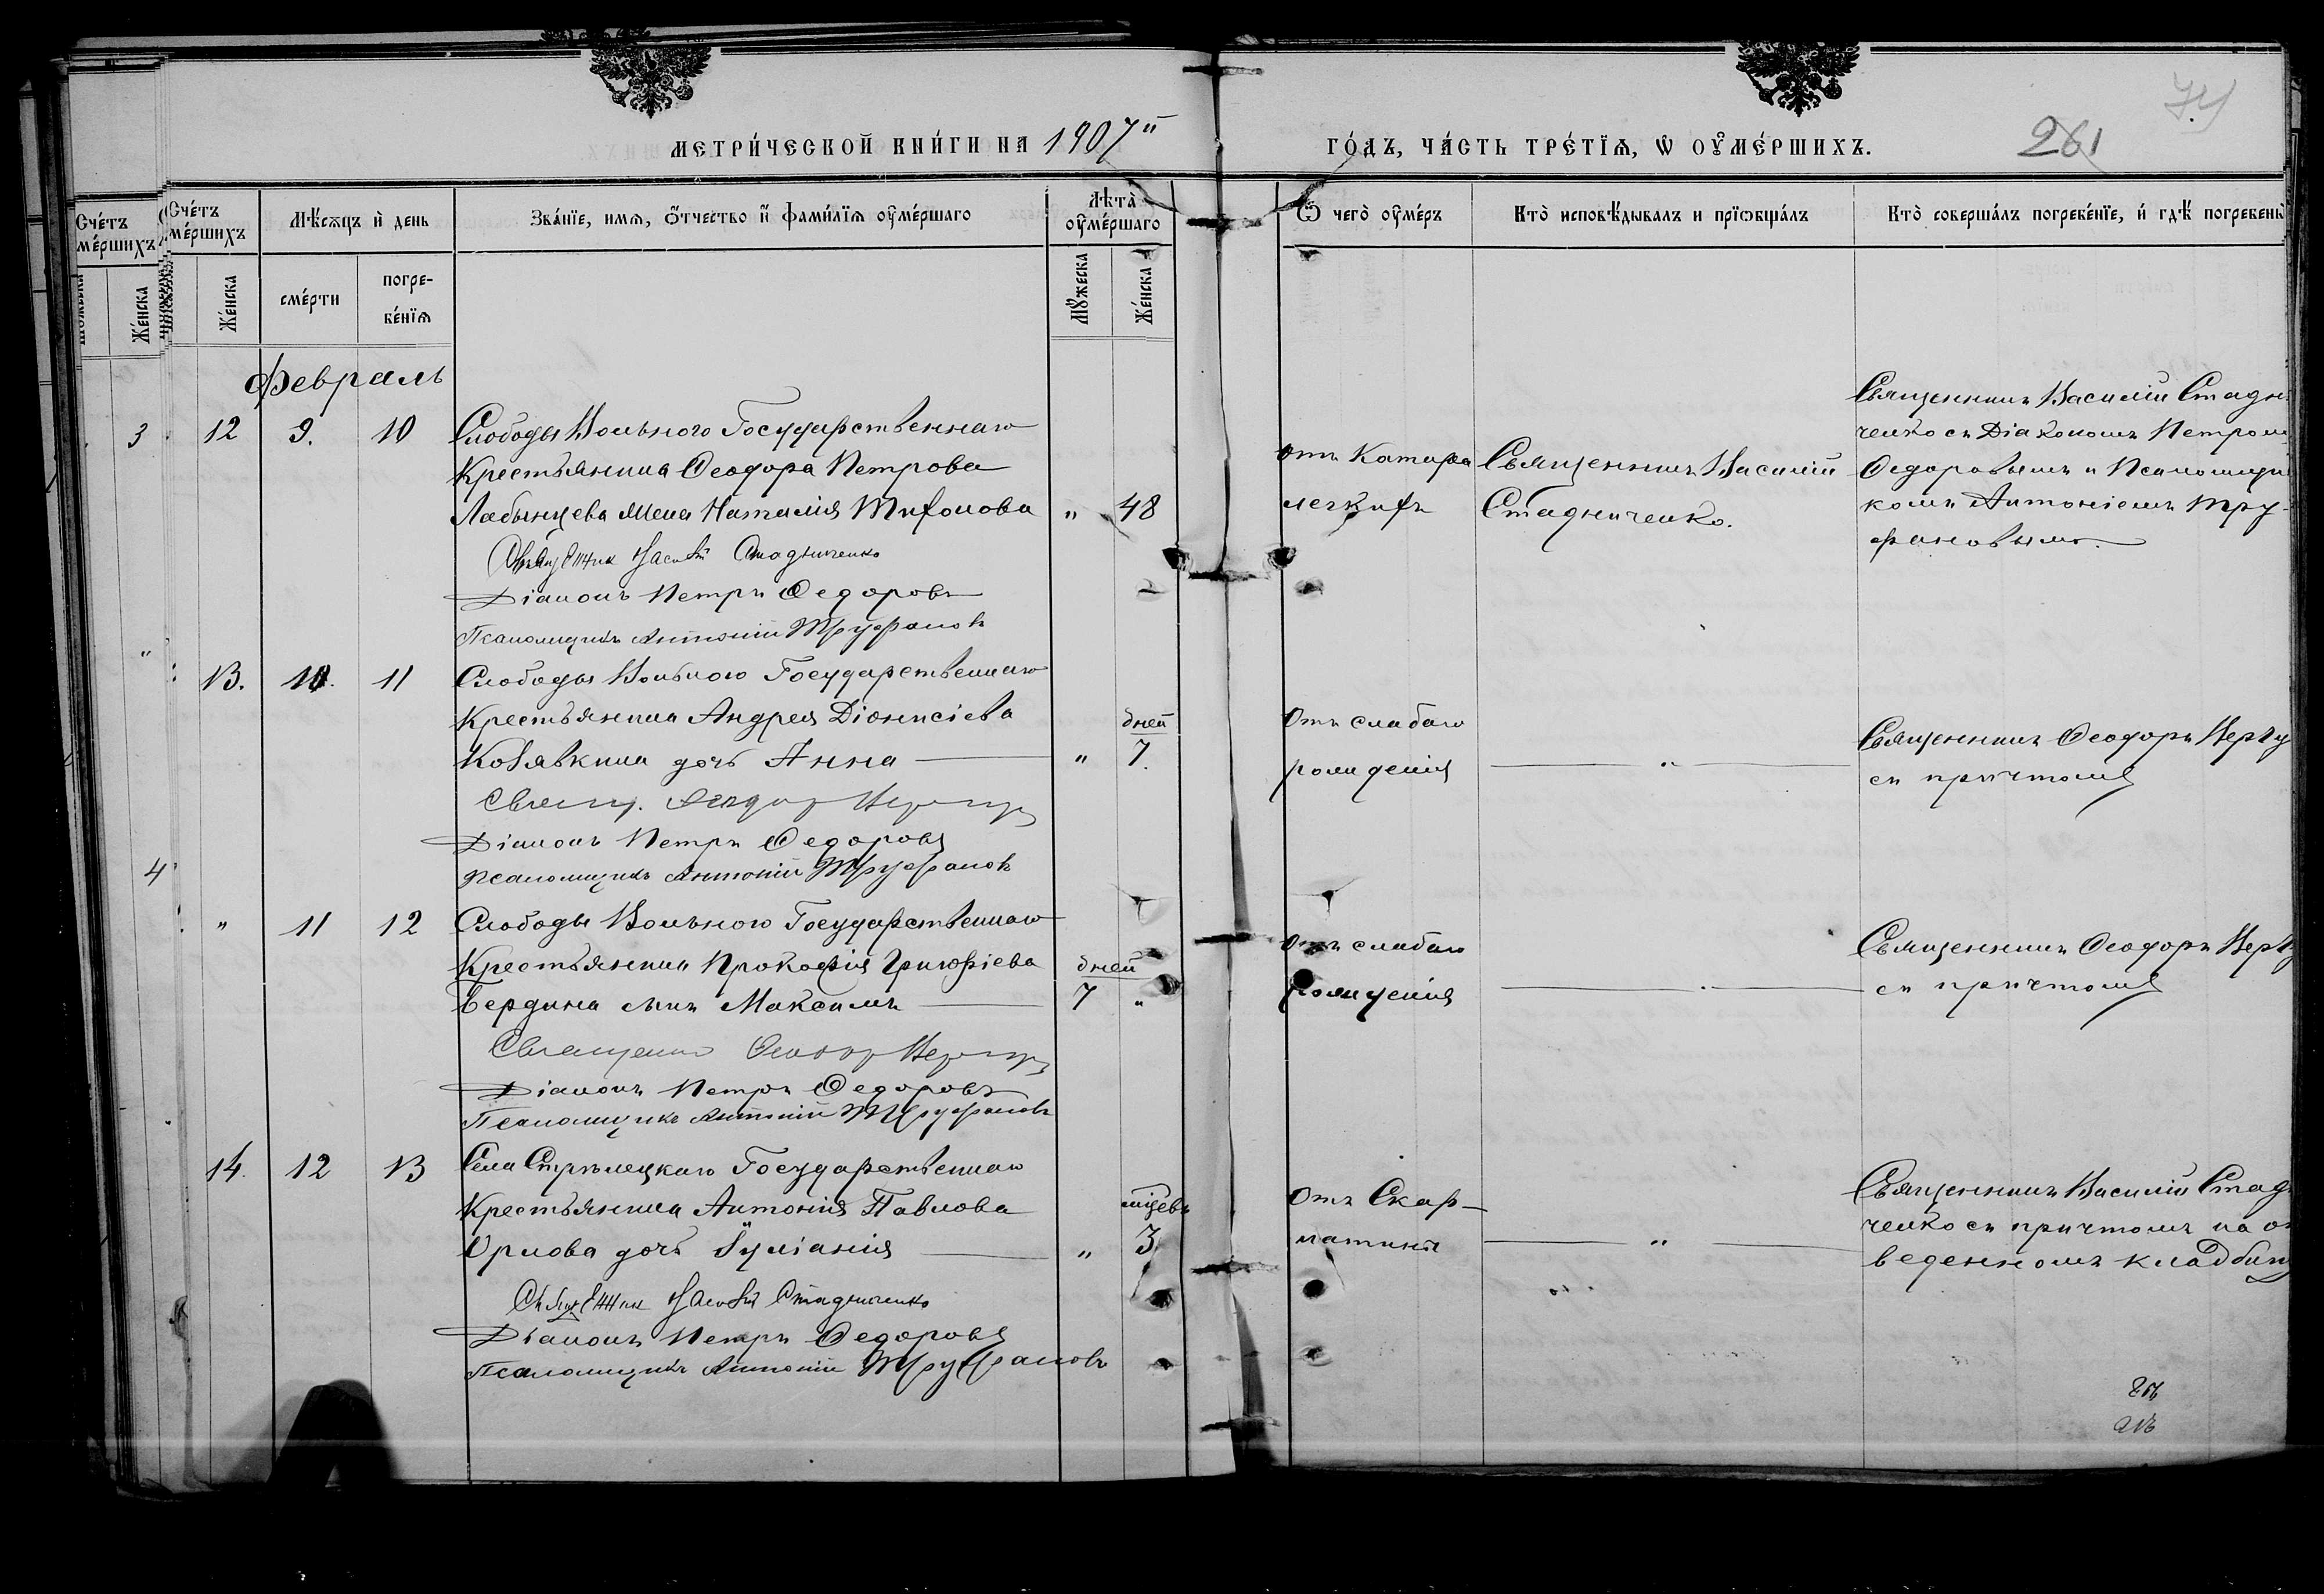 МЕТРИ́ЧЕСКОЙ КНИ́ГИ НА 1907й ГО́ДЪ, ЧА́СТЬ ТРЕ́ТЇѦ, Ѿ ОУМЕ́РШИХЪ.
261
Сче́тъ ме́ршихъ
Сче́тъ ме́ршихъ
Мѣ́сѧцъ и҆ день
Зва́нїе, имѧ, ѻ҆тчество и҆ фами́лїѧ оу҆ме́ршаго
Лѣта̀ оу҆ме́ршаго
Ѿ чегѡ̀ оу҆ме́ръ
Кто̀ исповѣ́дывалъ и прїѡбща́лъ
Кто̀ соверша́лъ погребе́нїе, и҆ гдѣ̀ погребены̀
Же́нска
Же́нска
сме́рти
погре-
бе́нїѧ
Мꙋжеска
Же́нска
Февраль
3 12 9. 10 Слободы Вольного Государственнаго
Крестьянина Ѳеодора Петрова
Лабынцева жена Наталія Тихонова " 48
Священник Василий Стадниченко
Діаконъ Петръ Ѳедоровъ
Псаломщикъ Антоній Труфановъ
Отъ Катара
легкихъ
Священникъ Василій
Стадниченко.
Священникъ Василій Стадни
ченко съ Діакономъ Петромъ
Ѳедоровымъ и Псаломщи
комъ Антоніемъ Тру-
фановымъ.
13. 10. 11 Слободы Вольного Государственнаго
Крестьянина Андрея Діонисіева
Козявкина дочь Анна " дней 7.
Свящ. Ѳеодор
Діаконъ Петръ Ѳедоровъ
Псаломщикъ Антоній Труфановъ
Отъ слабаго
рожденія
"
Священникъ Ѳеодоръ
съ причтомъ
4
" 11 12 Слободы Вольного Государственнаго
Крестьянина Прокофія Григоріева
Бердина сынъ Максимъ дней 7 "
Священник Ѳеодор
Діаконъ Петръ Ѳедоровъ
Псаломщикъ Антоній Труфановъ
Отъ слабаго
рожденія
Священникъ Ѳеодоръ
съ причтомъ
14. 12 13 Села Стрѣлецкаго Государственнаго
Крестьянина Антонія Павлова
Орлова дочь Іуліанія " мѣсцевъ 3
Священник Василий Стадниченко
Діаконъ Петръ Ѳедоровъ
Псаломщикъ Антоній Труфановъ
Отъ Скар-
латины
"
Священникъ Василій Стадни
ченко съ причтомъ на от
веденномъ кладбищ